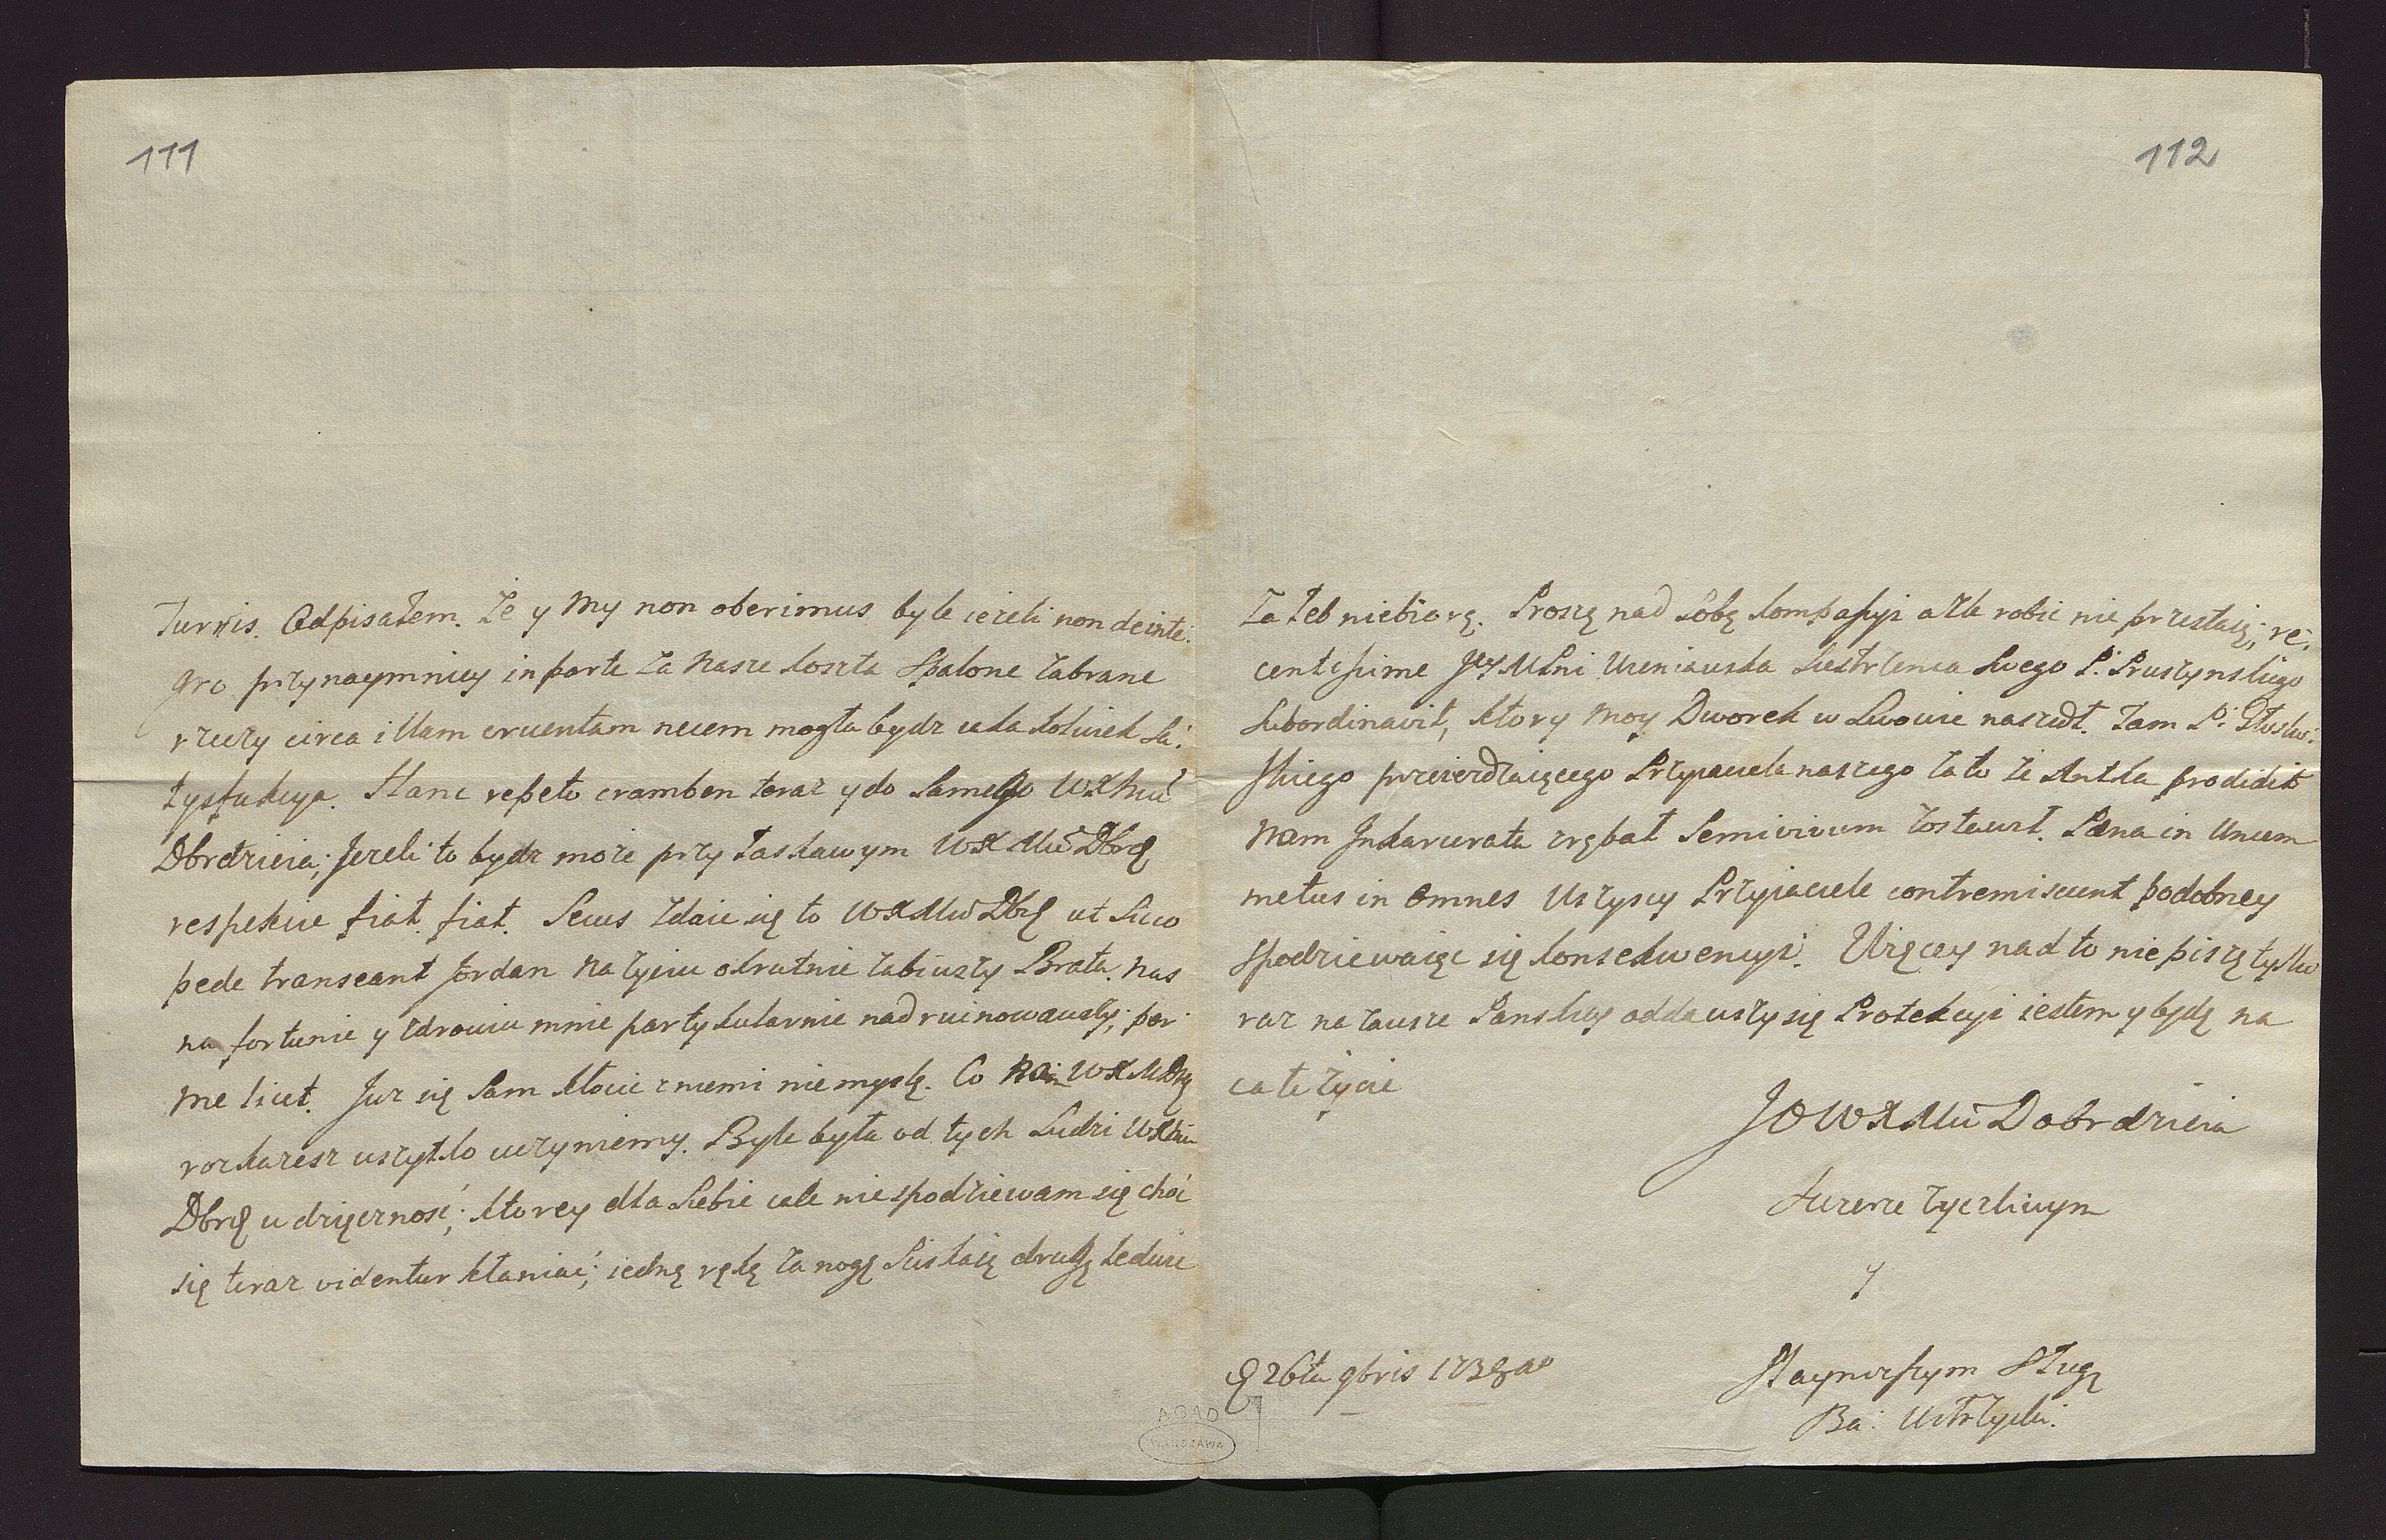 111
Turris. Odpisałem. Że y my non oberimus byle ieżeli non deinte:
gro przynaymniey in parte za nasze koszta spalone zabrane
rzeczy circa illam cruentam necem mogła bydz iaka kolwiek Sa:
tysfakcya. Hanc repeto cramben teraz y do samego WXMći
Dbrdzieia; Jezeli to bydz może przy łaskawym WXMći Dbrę
respekcie fiat. fiat. Secus zdaie się to WXMći Dbrę ut sicco
pede transeant Jordan na życiu okrutnie zabiwszy Brata. nas
na fortunie y zdrowiu mnie partykularnie nadruinowawszy; per
me licet. Juz się sam kłócić z niemi nie myslę. Co WXMDbrę
rozkażesz wszytko uczyniemy. Byle była od tych Ludzi WXMći
Dbrę wdzięcznosć; ktorey dla siebie cale nie spodziewam się choć
się teraz videntur kłaniać; iedną ręką za nogę sciskaią drugą ledwie
112
za łeb niebiorą. Proszę nad sobą kompassyi a źle robić nie przestaią; re:
centissime JeyMsPni siestrzenca swego P. Pruszynskiego
subordinavit, ktory moy Dworek w Lwowie naszedł. Tam P.
skiego przeieżdzaiącego Przyiaciela naszego za to że Antka prodidit
nam Inkarcerata zrąbał semivivum zostawił. Pæna in Unum
metus in omnes wszyscy Przyiaciele contremiscunt podobney
spodziewaiąc się konsekwencyi. Więcey nad to nie piszę tylko
raz na zawsze Panskiey oddawszy się Protekcyi iestem y będę na
całe życie
JOWXMći Dobrdzieia
szczerze życzliwym
y
Naynizszym sługą
Ba: Ustrzycki.
26ta 9bris
AGAD
WARSZAWA